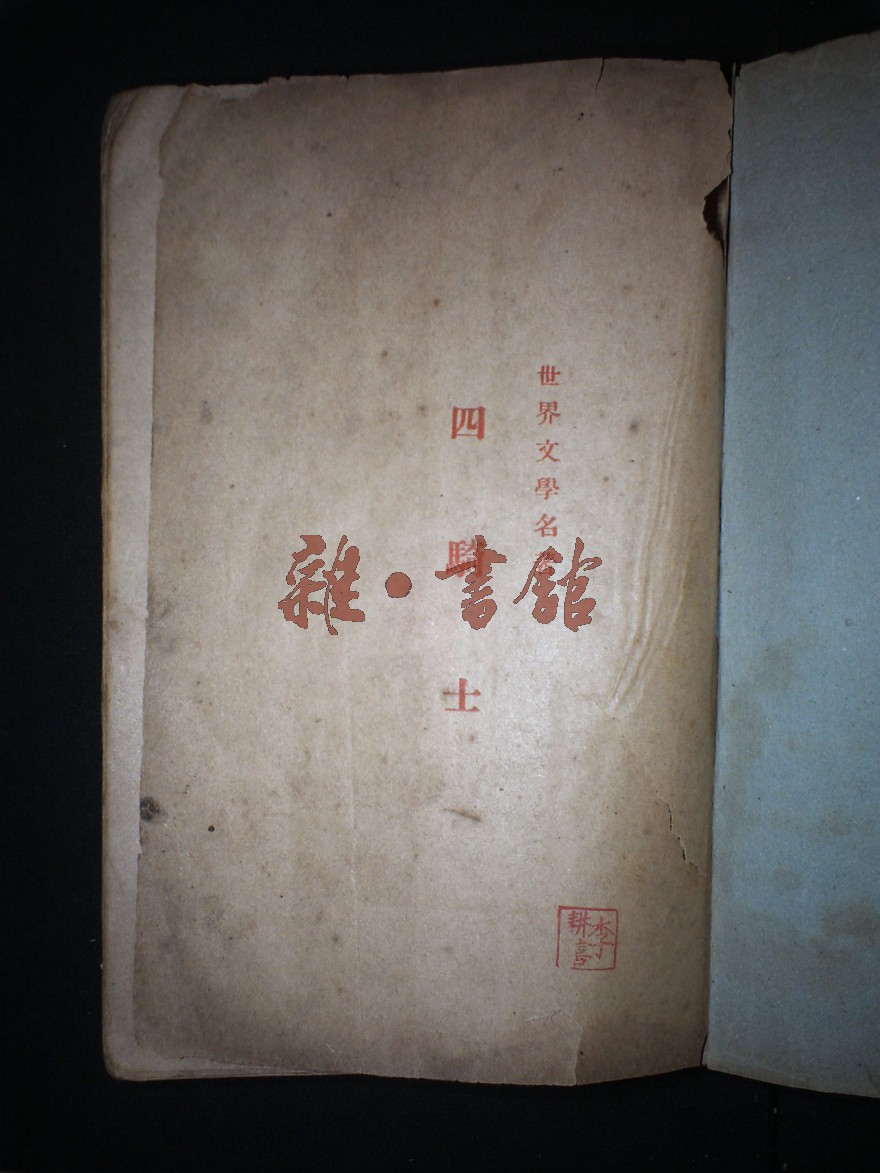 世界文學名
四騎士
雜·書館
李耕喜